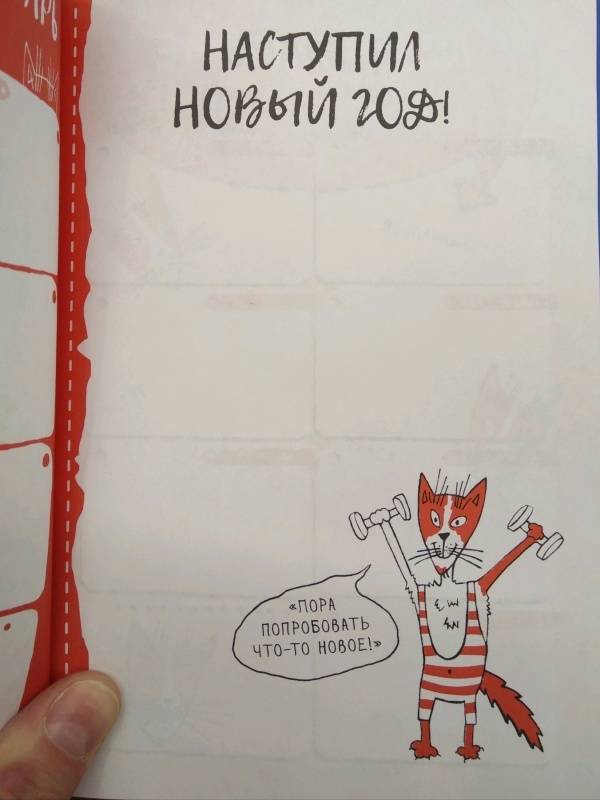 НАСТУПИЛ
НОВЫЙ ГОД!
«ПОРА
ПОПРОБОВАТЬ
ЧТО-ТО НОВОЕ!»